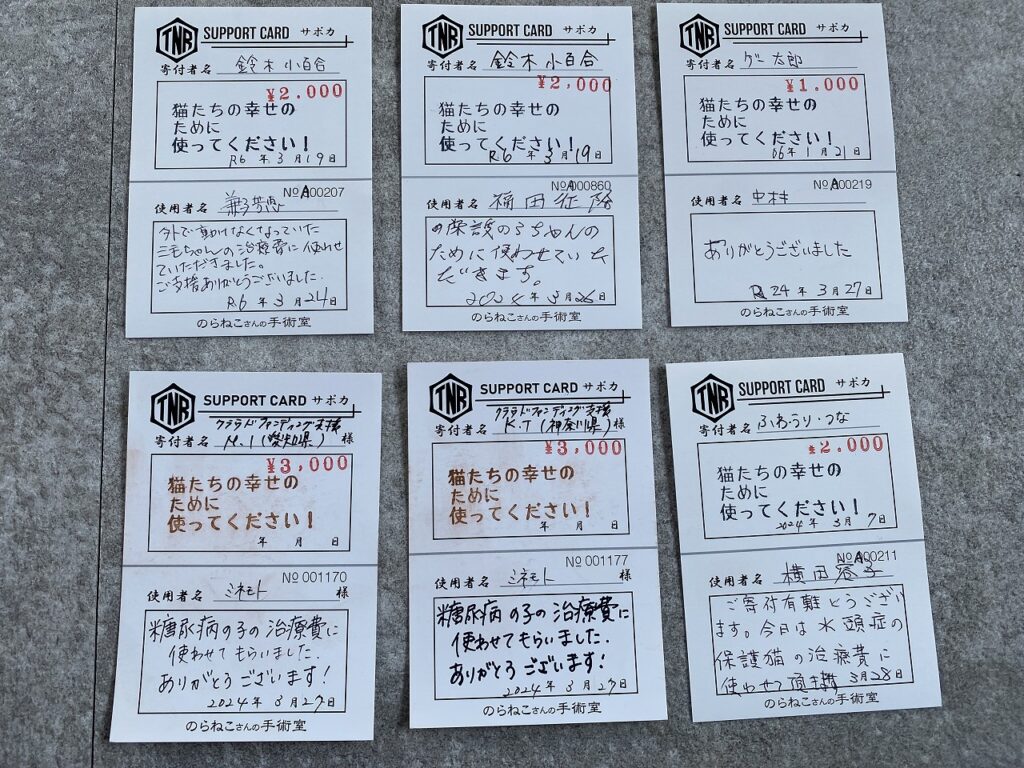 TNR SUPPORT CARD サポカ
寄付者名 鈴木 小百合
¥2.000
猫たちの幸せの
ために
使ってください！
R6年 3月19日
NO A00207
使用者名
外で動けなくなっていた
三毛ちゃんの治療費に使わせ
ていただきました。
ご支援ありがとうございました.
R6年 3月24日
のらねこさんの手術室
TNR SUPPORT CARD サポカ
寄付者名 鈴木 小百合
¥2,000
猫たちの幸せの
ために
使ってください！
R6年 3月19日
NO A00860
使用者名 福田
のらちゃんの
ために使わせていた
だきます。
2024年 3月26日
のらねこさんの手術室
TNR SUPPORT CARD サポカ
寄付者名 グー太郎
¥1.000
猫たちの幸せの
ために
使ってください！
06年 1月21日
NO A00219
使用者名 中村
ありがとうございました
24年 3月27日
のらねこさんの手術室
TNR SUPPORT CARD サポカ
クラウドファンディング支援
寄付者名 M.I (愛知県) 様
¥3,000
猫たちの幸せの
ために
使ってください！
年 月 日
NO 001170
使用者名 ミネモト 様
糖尿病の子の治療費に
使わせてもらいました.
ありがとうございます!
2024年 3月27日
のらねこさんの手術室
TNR SUPPORT CARD サポカ
クラウドファンディング支援
寄付者名 K.T (神奈川県) 様
¥3,000
猫たちの幸せの
ために
使ってください！
年 月 日
NO 001177
使用者名 ミネモト 様
糖尿病の子の治療費に
使わせてもらいました.
ありがとうございます!
2024年 3月27日
のらねこさんの手術室
TNR SUPPORT CARD サポカ
寄付者名 ふわ・うり・つな
¥2.000
猫たちの幸せの
ために
使ってください！
2024年 3月7日
NO A00211
使用者名 横田
ご寄付有難とうござい
ます。今日は水頭症の
保護猫の治療費に
使わせて頂きます 3月28日
のらねこさんの手術室